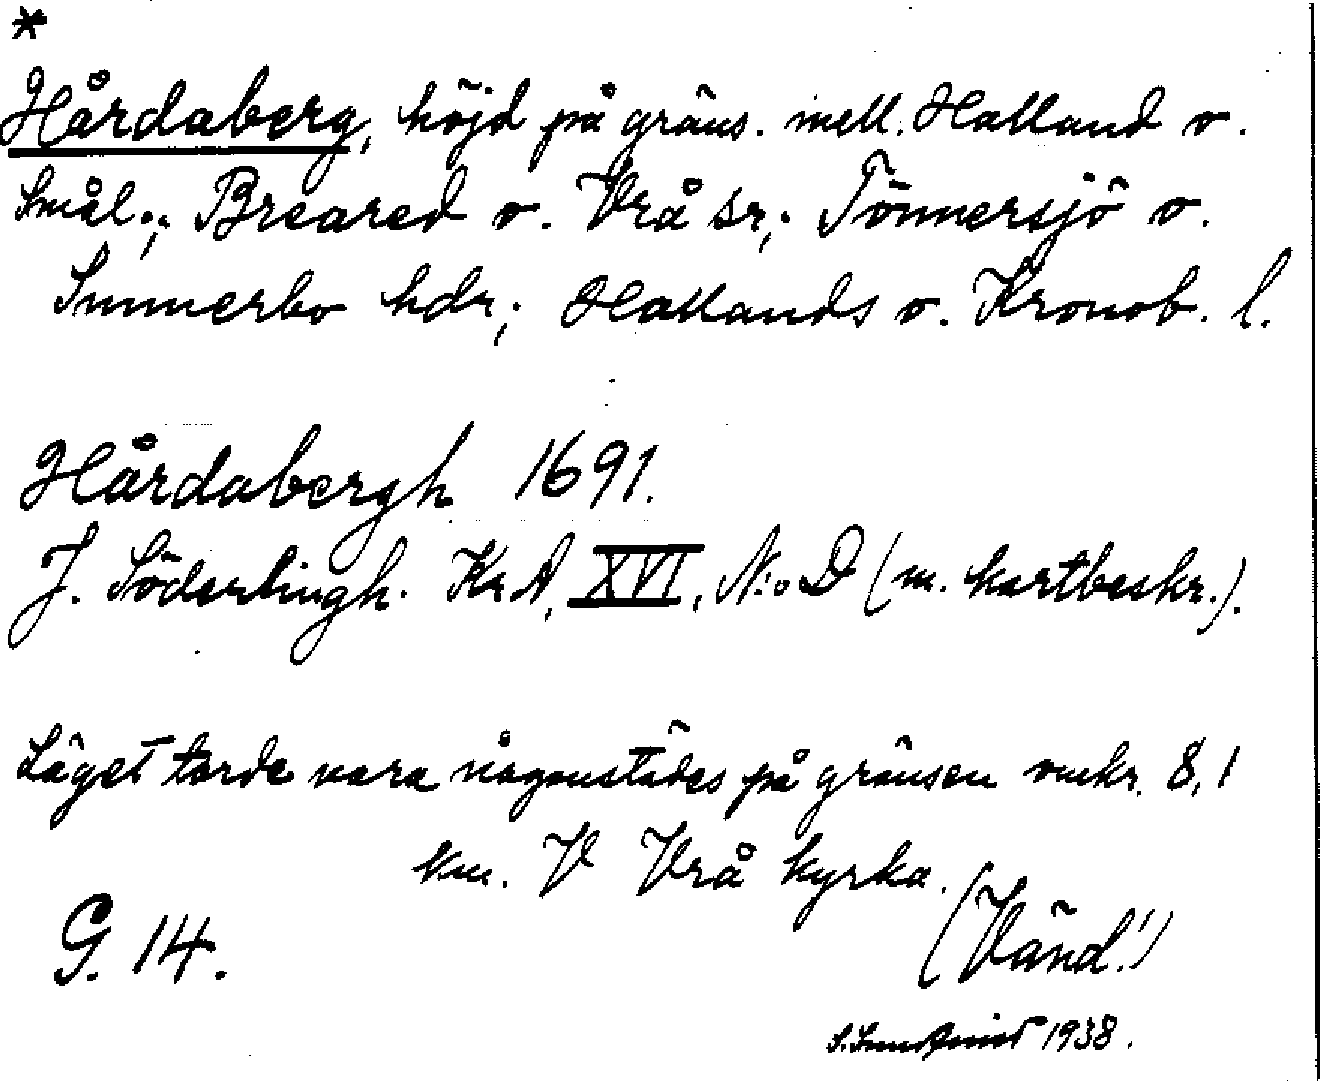 *
Hårdaberg, höjd på gräns. mell. Halland o.
Smål.; Breared o. Vrå sr; Tönnersjö o.
Sunnerbo hdr; Hallands o. Kronob. l.
Hårdabergh 1691.
J. Söderlingh. Kr.A, XVI, N:o D (m. kartbeskr.).
Läget torde vara någonstädes på gränsen omkr. 8,1
km. V Vrå kyrka.
(Vänd!)
G. 14.
1938.